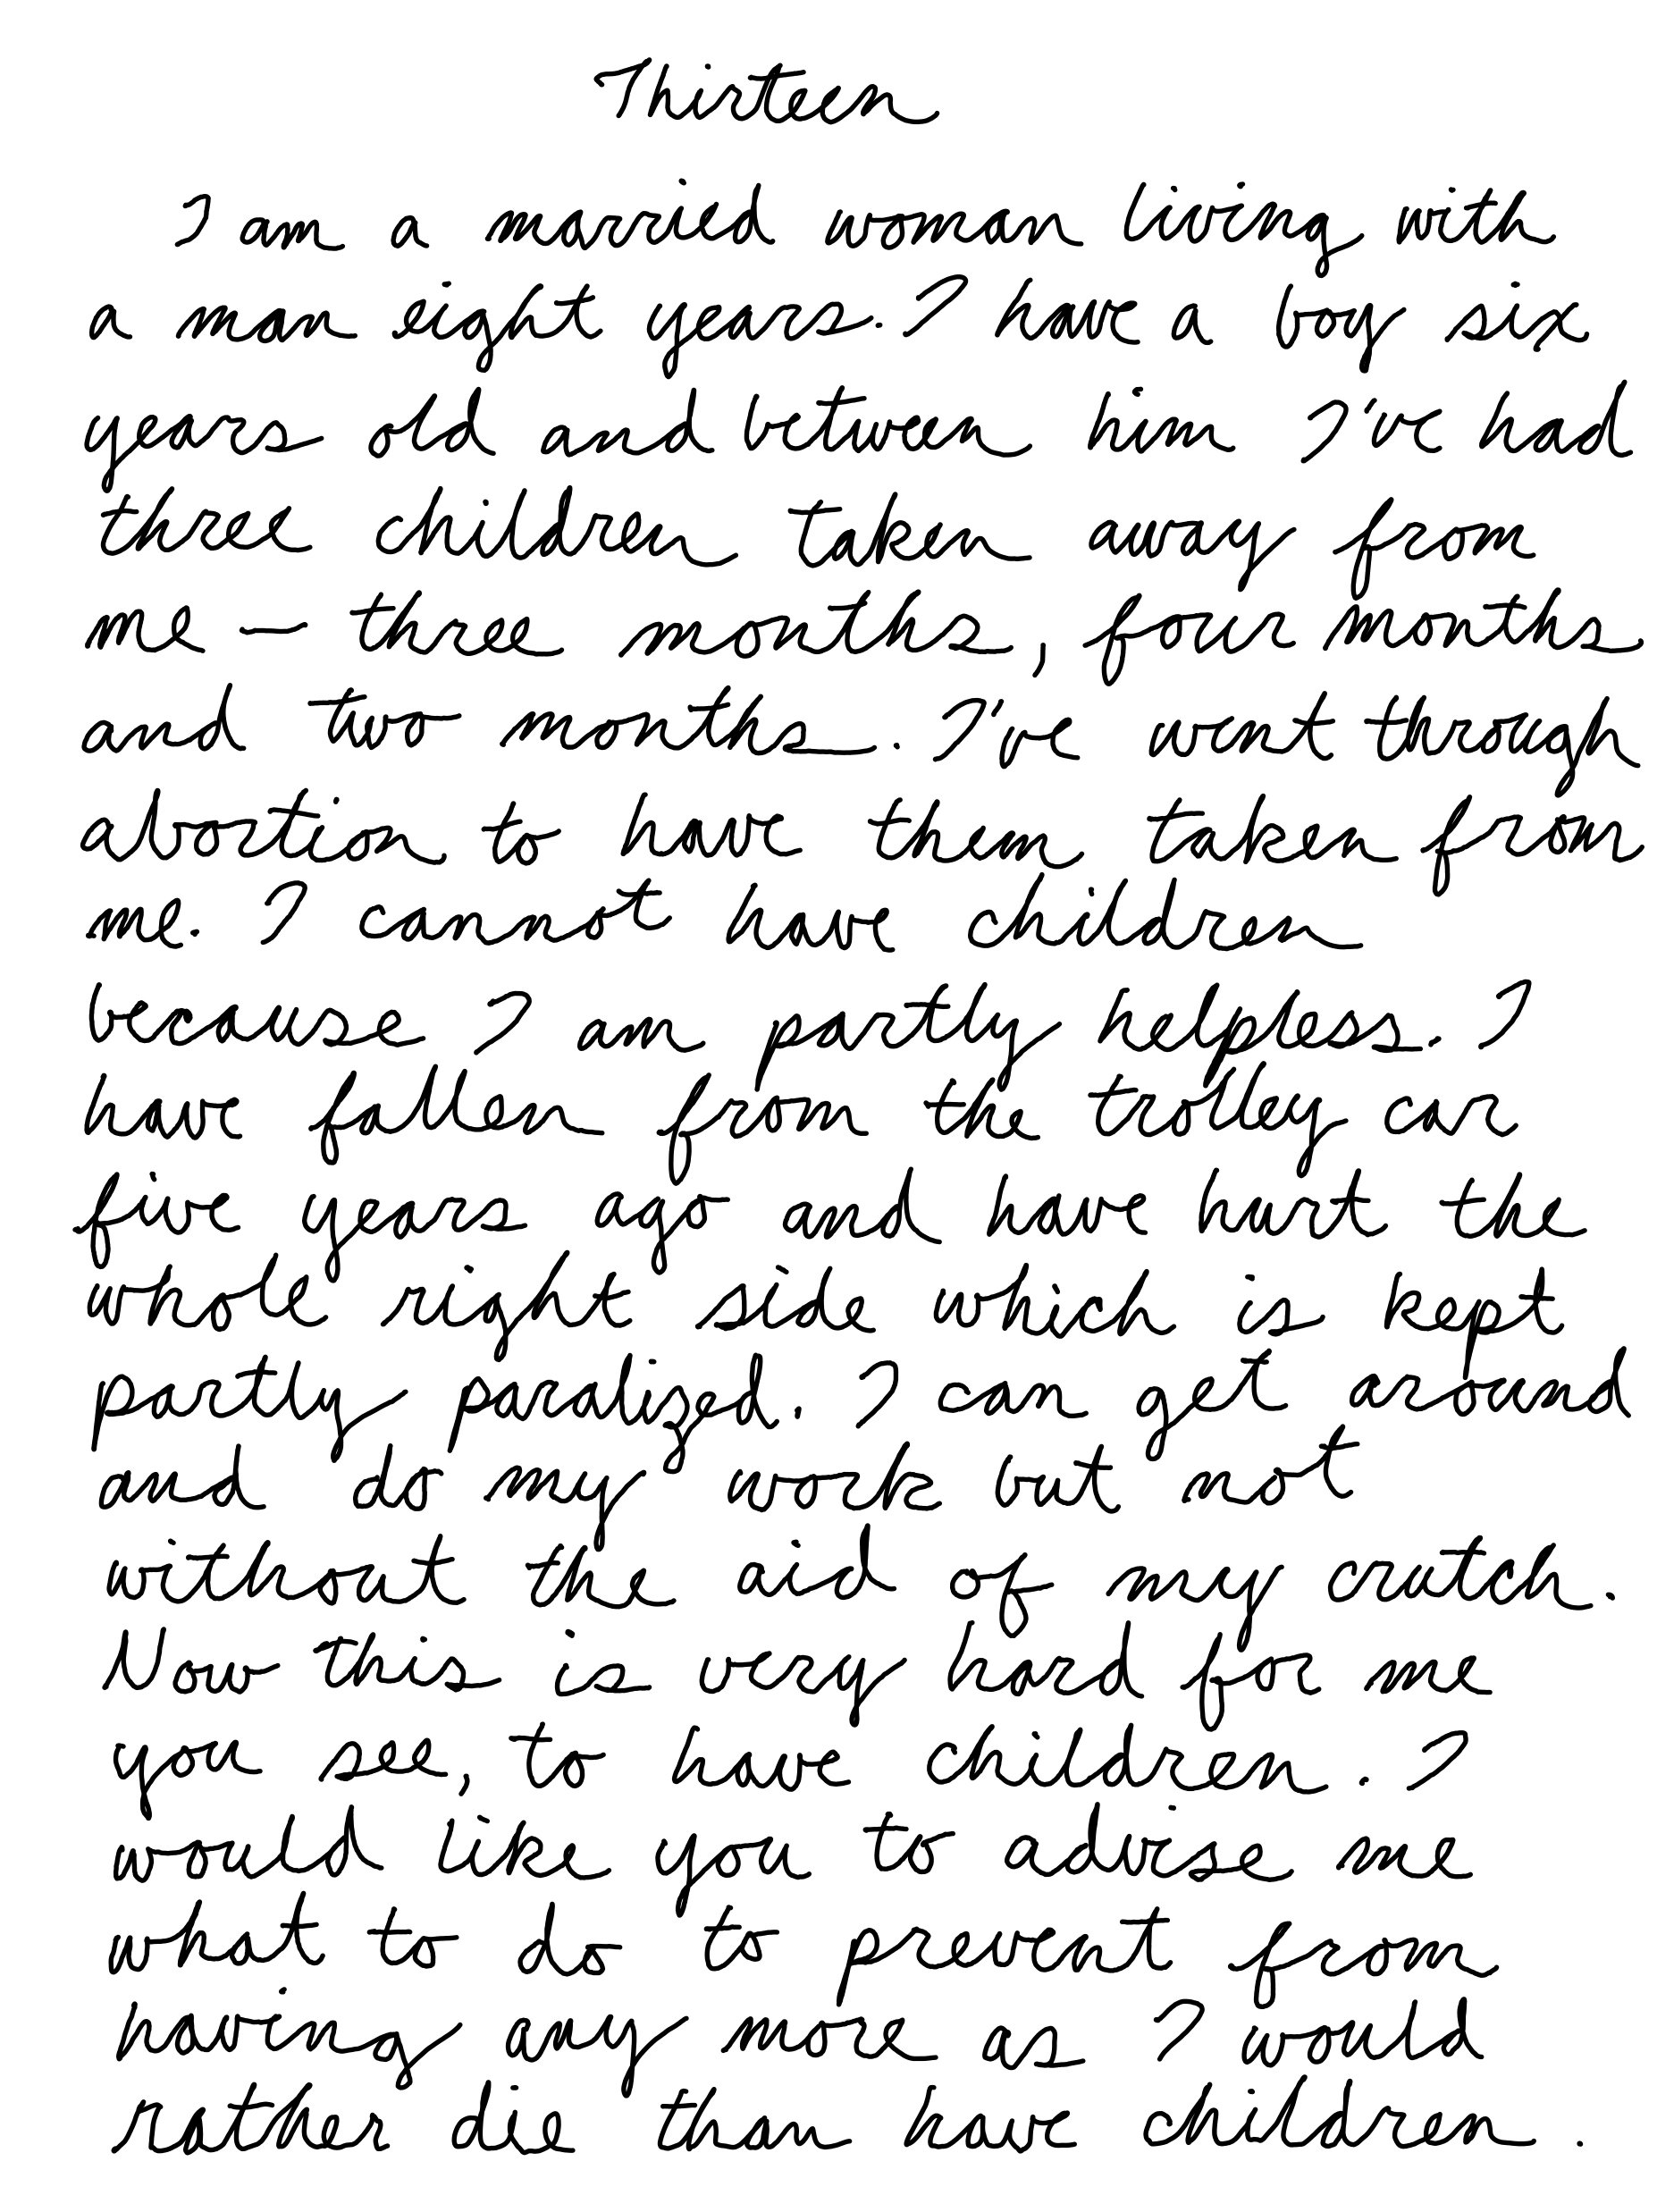 Thirteen
I am a married woman living with
a man eight years. I have a boy six
years old and between him I've had
three children taken away from
me — three months, four months
and two months. I've went through
abortion to have them taken from
me. I cannot have children
because I am partly helpless. I
have fallen from the trolley car
five years ago and have hurt the
whole right side which is kept
partly paralized. I can get around
and do my work but not
without the aid of my crutch.
Now this is very hard for me
you see, to have children. I
would like you to advise me
what to do to prevent from
having any more as I would
rather die than have children.